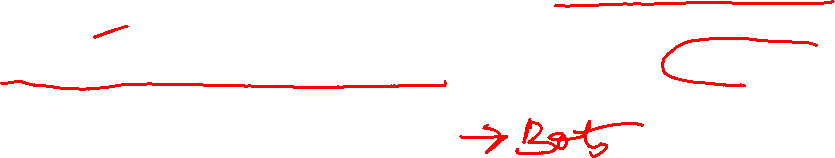 → Bots